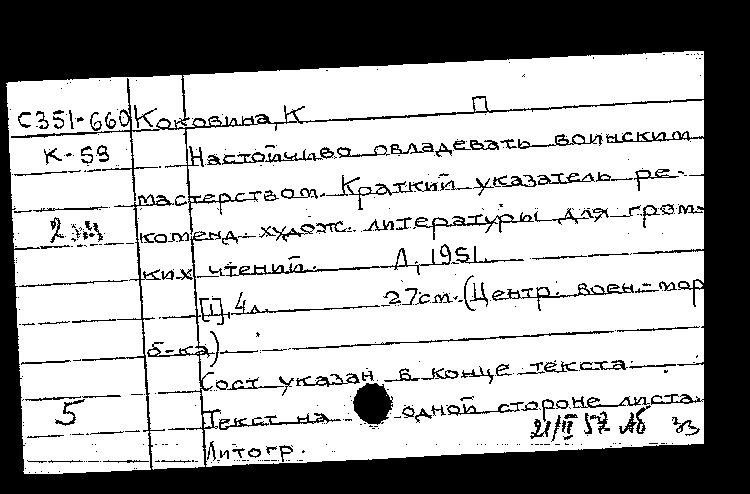 С351-660 Коковина, К П
К-59 Настойчиво овладевать воинским
мастерством. Краткий указатель ре-
2 коменд. худож. литературы для гром-
ких чтений. Л, 1951.
[1], 4 л. 27см. (Центр. воен.-мор
б-ка)
Сост указан в конце текста.
5 Текст на одной стороне листа.
21/II 57 Аб
Литогр.